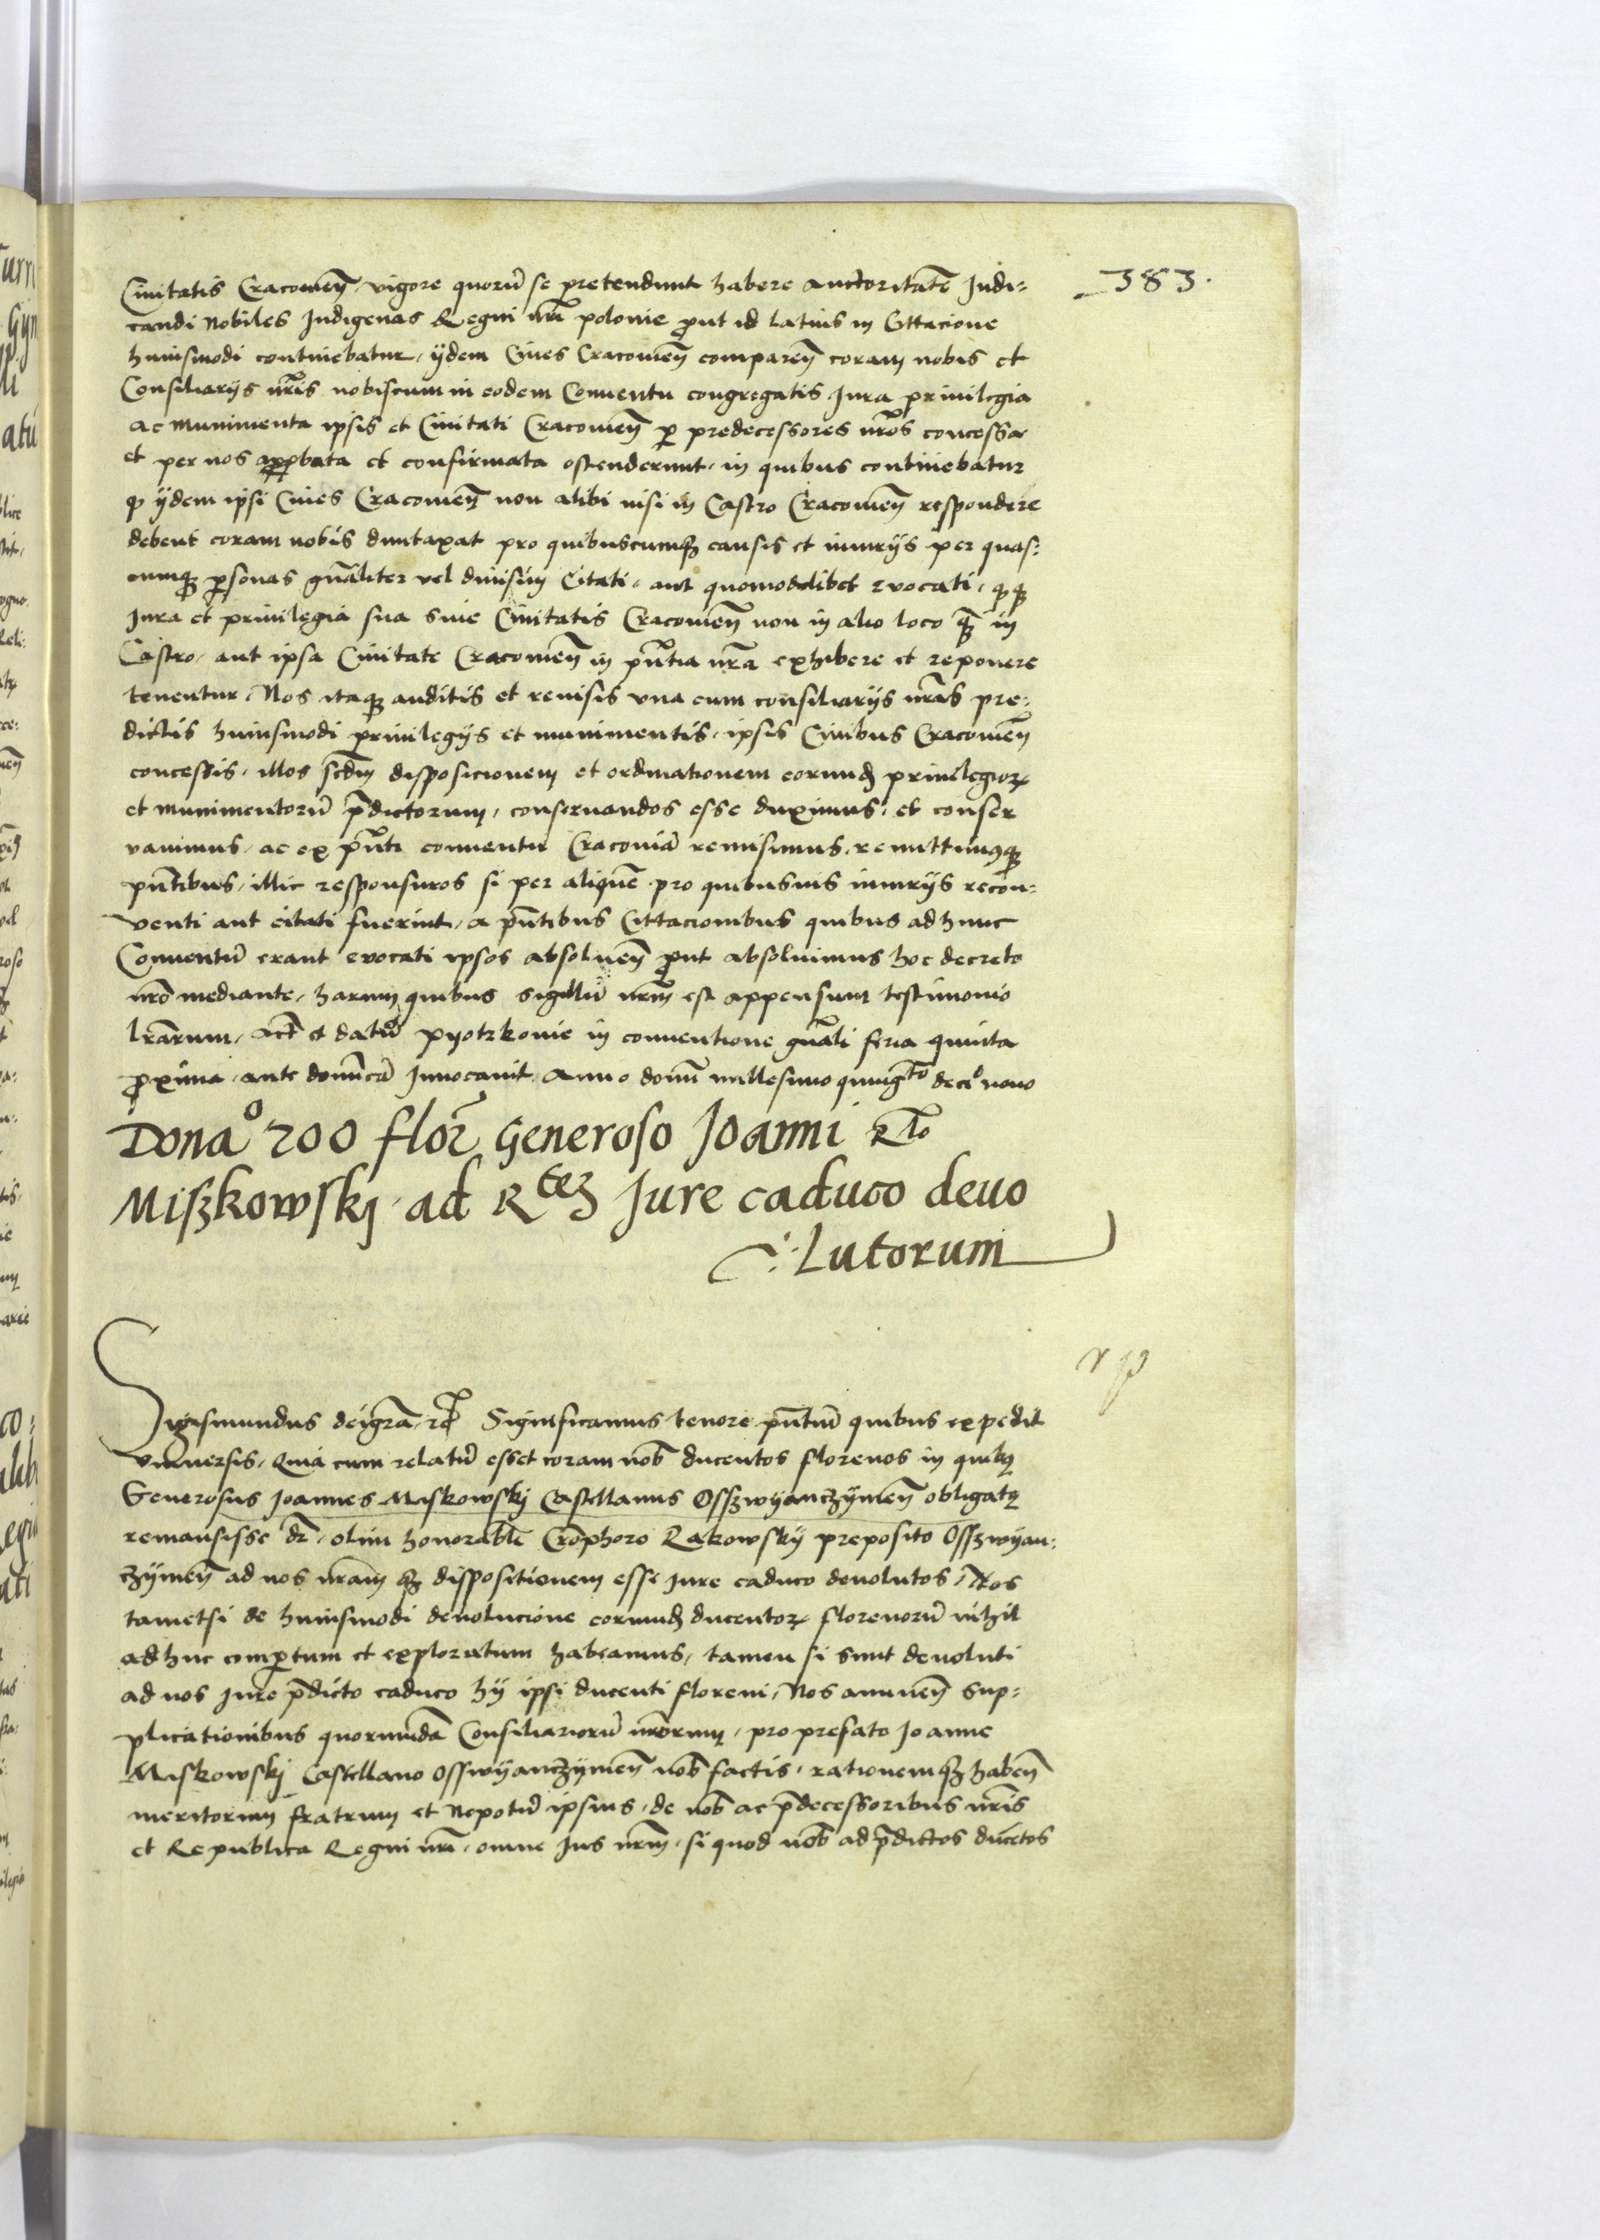 383.
Ciuitatis Cracouień vigore quorū se pretendunt habere auctoritatē Iudi=
candi Nobiles Indigenas Regni nrī polonie ꝓut id latius in Cittacione
huiusmodi continebatur, ijdem Ciues Cracouień compareń coram nobis et
Consiliarijs nrīs nobiscum in eodem Conuentu congregatis Iura priuilegia
ac munimenta ipsis et Ciuitati Cracouień ꝑ predecessores nrōs concessa
et per nos approbata et confirmata ostenderunt, in quibus continebatur
ꝙ ijdem ipsi Ciues Cracouień non alibi nisi in Castro Cracouień respondere
debent coram nobis duntaxat pro quibuscumqꝫ causis et iniurijs per quas=
cumqꝫ ꝑsonas gnāliter vel diuisim Citati, aut quomodolibet euocati, ꝙqꝫ
Iura et priuilegia sua siue Ciuitatis Cracouień non in alio loco qꝫ in
Castro, aut ipsa Ciuitate Cracouień in pn̄tia nrā exhibere et reponere
tenentur, Nos itaqꝫ auditis et reuisis vna cum consiliarijs nrīs pre=
dictis huiusmodi priuilegijs et munimentis, ipsis Ciuibus Cracouień
concessis, illos scdm̄ disposicionem et ordinationem eorundꝫ priuilegioꝝ
et munimentorū p̄dictorum, conseruandos esse duximus, et conser
vauimus, ac ex pn̄ti conuentu Cracouiā remisimus, remittimusqꝫ
pn̄tibus, illic responsuros si per aliquē pro quibusuis iniurijs recon=
venti aut citati fuerint, a pn̄tibus Cittacionibus quibus ad hunc
Conuentū erant euocati ipsos absolueń ꝓut absoluimus hoc decreto
nrō mediante, harum quibus sigillū nrm̄ est appensum testimonio
lrārum, Act̄ et datū pyotrkouie in conuentione gnāli feria quinta
ꝓxima ante domīcā Inuocauit Anno domī millesimo quingᵗᵒ deciᵒ nono
Donaᵒ 200 flor̄ Generoso Joanni
Misꝫkowskj ad Rᵗᵉᵐ Jure caduco deuo
Lutorum
Sigismundus dei grā ꝛc̄ Significamus tenore pn̄tiū quibus expedit
vniuersis, Quia cum relatū esset coram nob̄ ducentos florenos in quibꝰ
Generosus Joannes Miskowskj Castellanus Osszwyanczymeń obligatꝰ
remansisse dr̄, olim honorabli Crōphoro Rakowsky preposito Osszwyan=
czymeń ad nos nrām qꝫ dispositionem esse Jure caduco deuolutos, Nos
tametsi de huiusmodi deuolucione eorundꝫ ducentoꝝ florenorū nihil
ad huc comꝑtum et exploratum habeamus, tamen si sunt deuoluti
ad nos Jure p̄dicto caduco hy ipsi ducenti floreni, Nos annueń sup=
plicationibus quorundā Consiliariorū nrōrum, pro prefato Joanne
Miskowskj Castellano Osswyanczymeń nob̄ factis, rationemqꝫ habeń
meritorum fratrum et Nepotū ipsius, de nob̄ ac p̄decessoribus nrīs
et Republica Regni nrī, omne Jus nrm̄, si quod nob̄ ad p̄dictos ducētos